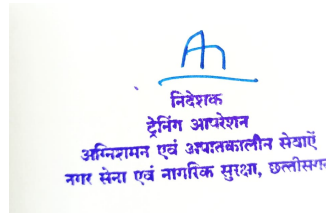 निदेशक
ट्रेनिंग आपरेशन
अग्निशमन एवं अापातकालीन सेवाऐं
नगर सेना एवं नागरिक सुरक्षा,